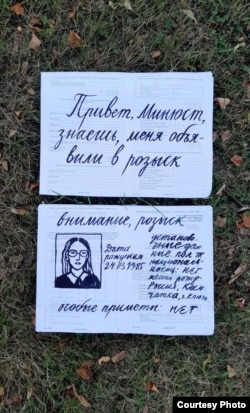 Привет, Минюст,
знаешь, меня объя-
вили в розыск
внимание, розыск
Дата
рождения
29.05.1985
установ
очные дан
ные: пол: ж
националь-
ность: нет
место рожд:
Россия, Кам-
чатка, г. Ключи
особые приметы: нет
Courtesy Photo